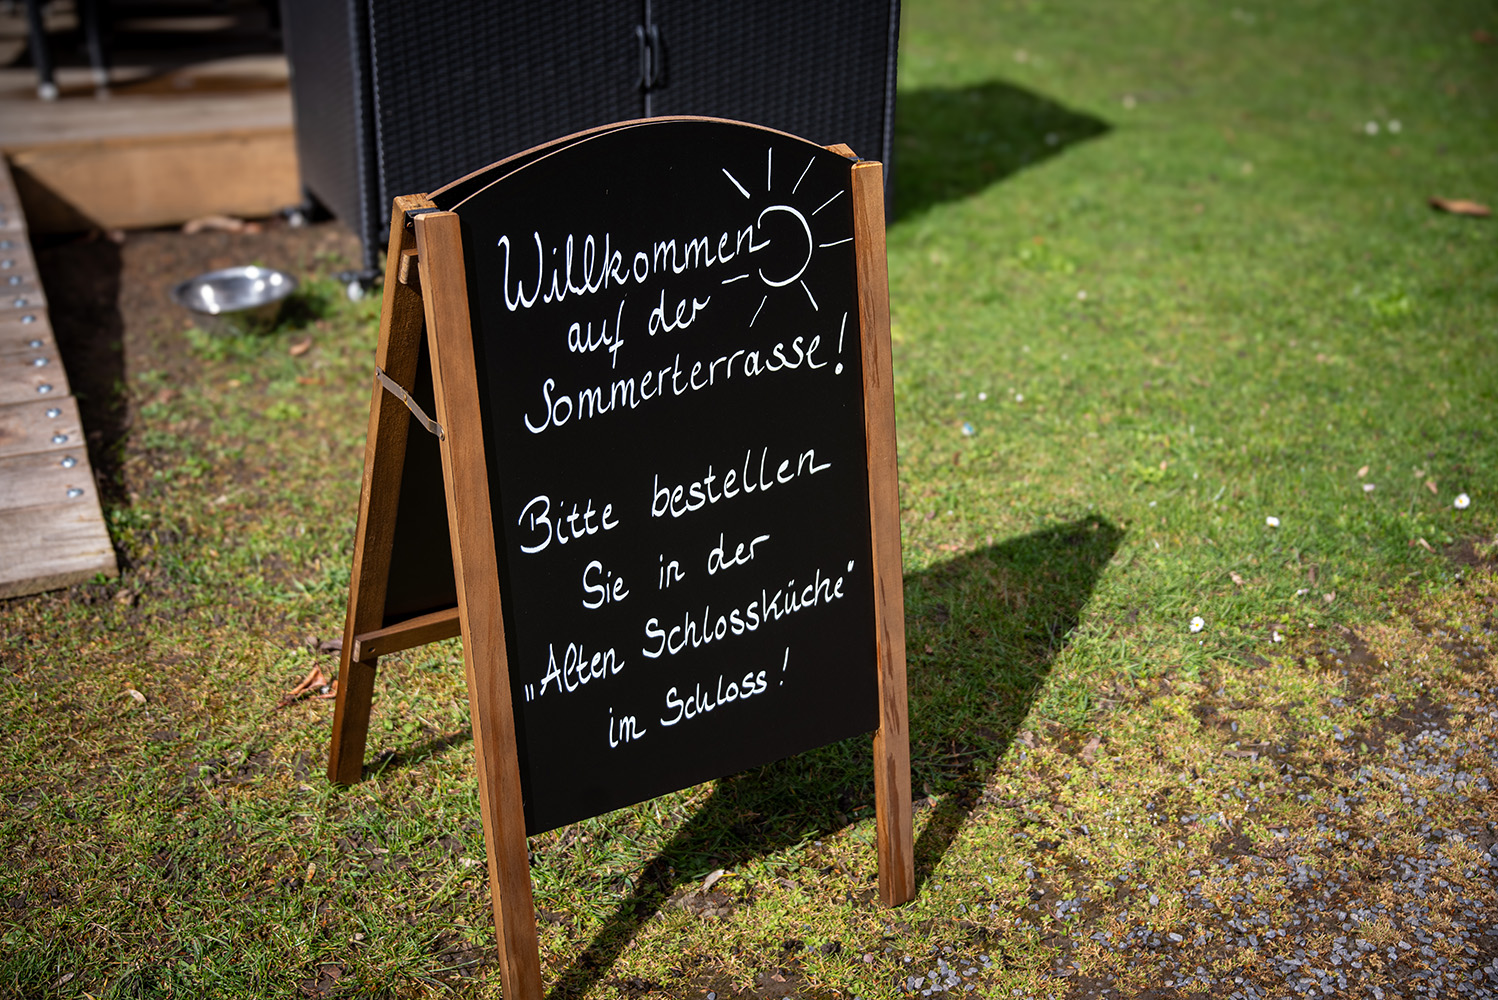 Willkommen
auf der
Sommerterrasse!
Bitte bestellen
Sie in der
„Alten Schlossküche“
im Schloss!